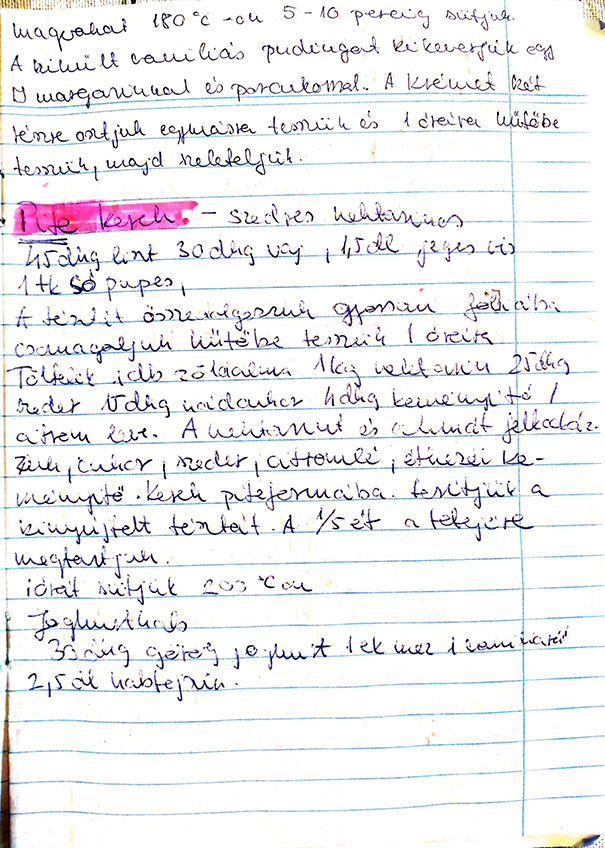 magvakat 180 °C -on 5-10 percig sütjük.
A kihült vaniliás pudingot kikeverjük egy
margarinnal és porcukorral. A krémet két
részre osztjuk egymásra tesszük és 1 óreira hűtőbe
tesszük, majd szeleteljük.
Pite kerek. - szedres nektarinos
45 dkg liszt 30 dkg vaj, 1,5 dl jeges víz
1 tk só pupos,
A tésztát összedolgozzuk gyorsan fóliába
csomagoljuk hűtőbe tesszük 1 óreira
Töltelék 1 db zöldalma 1 kg nektarin 25 dkg
szeder 15 dkg nádcukor 4 dkg keményítő 1
citrom leve. A nektarint és almát felkockáz-
zuk, cukor, szeder, citromlé, étkezési ke-
ményítő. Kerek piteformába. terítjük a
kinyújtott tésztát. A 1/5 ét a tetejére
megtartjuk.
1 óráit sütjük 200 °C on
Joghurthab
30 dkg görög joghurt 1 ek méz 1
2,5 dl habtejszín.